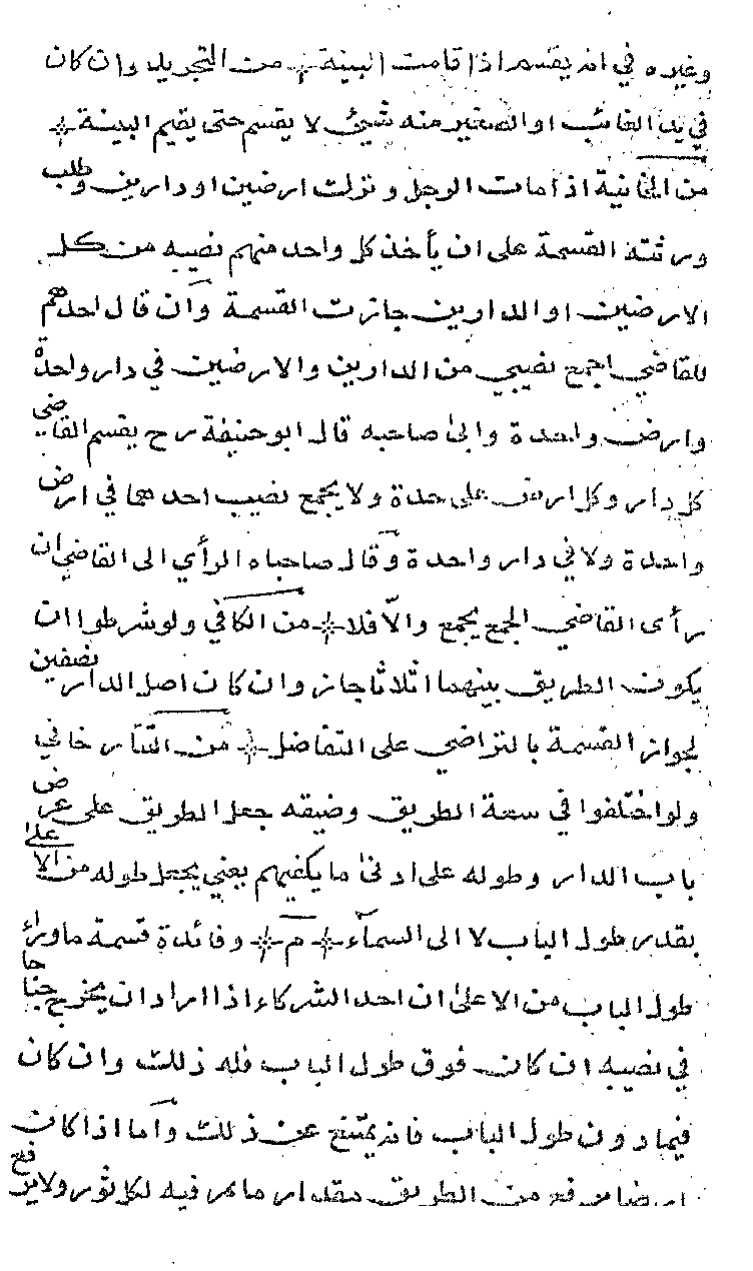 وغيره في انه يقسم اذا قامت البينة من التجريد وان كان
في يد الغائب او الصغير منه شيئ لا يقسم حتى يقيم البينة
من الخانية اذا مات الرجل وترك ارضين او دارين وطلب
ورثته القسمة على ان يأخذ كل واحد منهم نصيبه من كل
الارضين او الدارين جازت القسمة وان قال احدهم
للقاضي اجمع نصيبي من الدارين والارضين في دار واحدة
وارض واحدة وابى صاحبه قال ابو حنيفة رح يقسم القاضي
كل دار وكل ارض على حدة ولا يجمع نصيب احدهما في ارض
واحدة ولا في دار واحدة وقال صاحباه الرأي الى القاضي ان
رأى القاضي الجمع يجمع والا فلا من الكافي ولو شرطوا ان
يكون الطريق بينهما اثلاثا جاز وان كان اصل الدار نصفين
لجواز القسمة بالتراضي على التفاضل من التتارخاني
ولو اختلفوا في سعة الطريق وضيقه جعل الطريق على عرض
باب الدار وطوله على ادنى ما يكفيهم يعني يجعل طوله من الاعلى
بقدر طول الباب لا الى السمآء م وفائدة قسمة ما وراء
طول الباب من الاعلى ان احد الشركاء اذا اراد ان يخرج جناحا
في نصيبه ان كان فوق طول الباب فله ذلك وان كان
فيما دون طول الباب فانه يمتنع عن ذلك واما اذا كان
ارضا يرفع من الطريق مقدار ما يمر فيه لكل ثور ولا يرفع